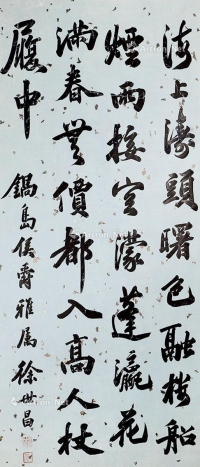 海上潮頭曙色融樓船
煙雨接空濛蓬瀛花
滿春無價都入高人杖
履中
鍋島侯爵雅屬 徐世昌